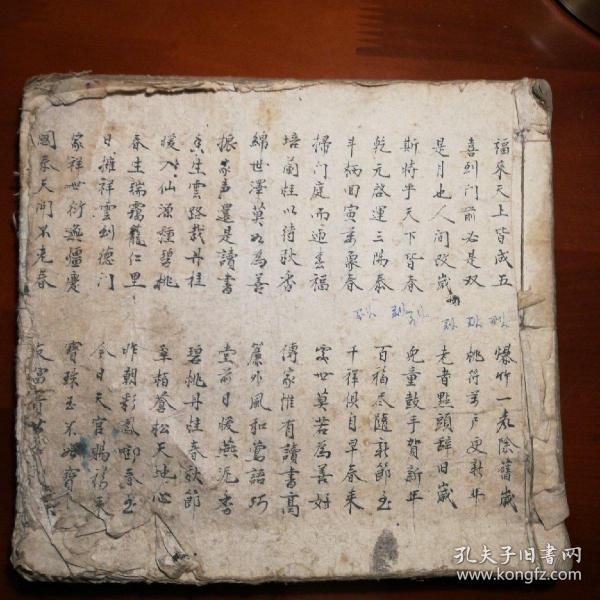 福來天上皆成五
喜到門前必是双
是月也人间改歲
斯時乎天下皆春
乾元啓運三陽泰
斗柄回寅萬象春
掃门庭而迎喜福
培蘭桂以待秋香
綿世澤莫如為善
振家声還是讀書
生雲路栽丹桂
暖入仙源種碧桃
春生瑞靄籠仁里
日擁祥雲到德门
家祥世衍無疆慶
國泰天開不老春
爆竹一声除舊歲
桃符萬户更新年
老者點頭辞旧歲
児童鼓手賀新年
百福尽隨新節至
千祥俱自早春来
處世莫若為善好
傳家惟有讀書高
簾外風和鶯語巧
堂前日暖燕泥香
碧桃丹桂春秋節
翠柏蒼松天地心
昨朝彩鳳啣春至
今日天官賜福来
寶珠玉不如寶
孔夫子旧书网
www.kongfz.com